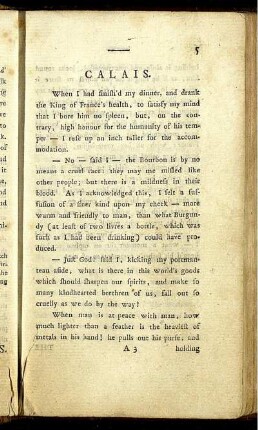 5
CALAIS.
When I had finish'd my dinner, and drank
the King of France's health, to satisfy my mind
that I bore him no spleen, but, on the con-
trary, high honour for the humanity of his tem-
per — I rose up an inch taller for the accom-
modation.
— No — said I — the Bourbon is by no
means a cruel race: they may be misled like
other people; but there is a mildness in their
blood. As I acknowledged this, I felt a suf-
fusion of a finer kind upon my cheek — more
warm and friendly to man, than what Burgun-
dy (at least of two livres a bottle, which was
such as I had been drinking) could have pro-
duced.
— Just God! said I, kicking my portman-
teau aside, what is there in this world's goods
which should sharpen our spirits, and make so
many kindhearted brethren of us, fall out so
cruelly as we do by the way?
When man is at peace with man, how
much lighter than a feather is the heaviest of
metals in his hand! he pulls out his purse, and
A 3 holding